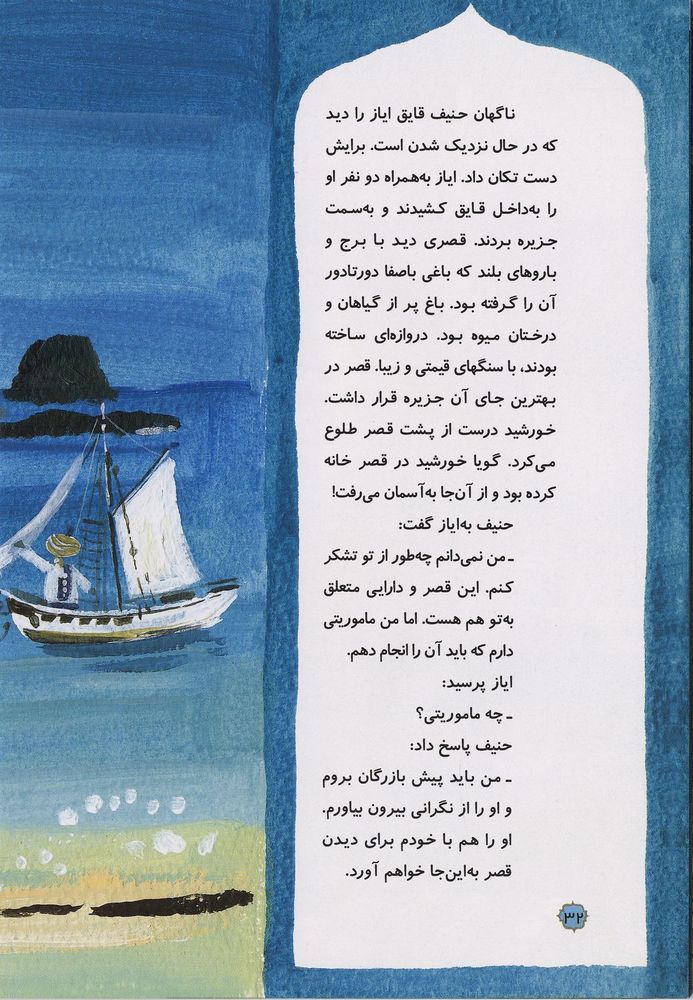 ناگهان حنیف قایق ایاز را دید
که در حال نزدیک شدن است. برایش
دست تکان داد. ایاز به‌همراه دو نفر او
را به‌داخل قایق کشیدند و به‌سمت
جزیره بردند. قصری دید با برج و
باروهای بلند که باغی باصفا دورتادور
آن را گرفته بود. باغ پر از گیاهان و
درختان میوه بود. دروازه‌ای ساخته
بودند، با سنگهای قیمتی و زیبا. قصر در
بهترین جای آن جزیره قرار داشت.
خورشید درست از پشت قصر طلوع
می‌کرد. گویا خورشید در قصر خانه
کرده بود و از آن‌جا به‌آسمان می‌رفت!
حنیف به‌ایاز گفت:
ـ من نمی‌دانم چه‌طور از تو تشکر
کنم. این قصر و دارایی متعلق
به‌تو هم هست. اما من ماموریتی
دارم که باید آن را انجام دهم.
ایاز پرسید:
ـ چه ماموریتی؟
حنیف پاسخ داد:
ـ من باید پیش بازرگان بروم
و او را از نگرانی بیرون بیاورم.
او را هم با خودم برای دیدن
قصر به‌این‌جا خواهم آورد.
۳۲